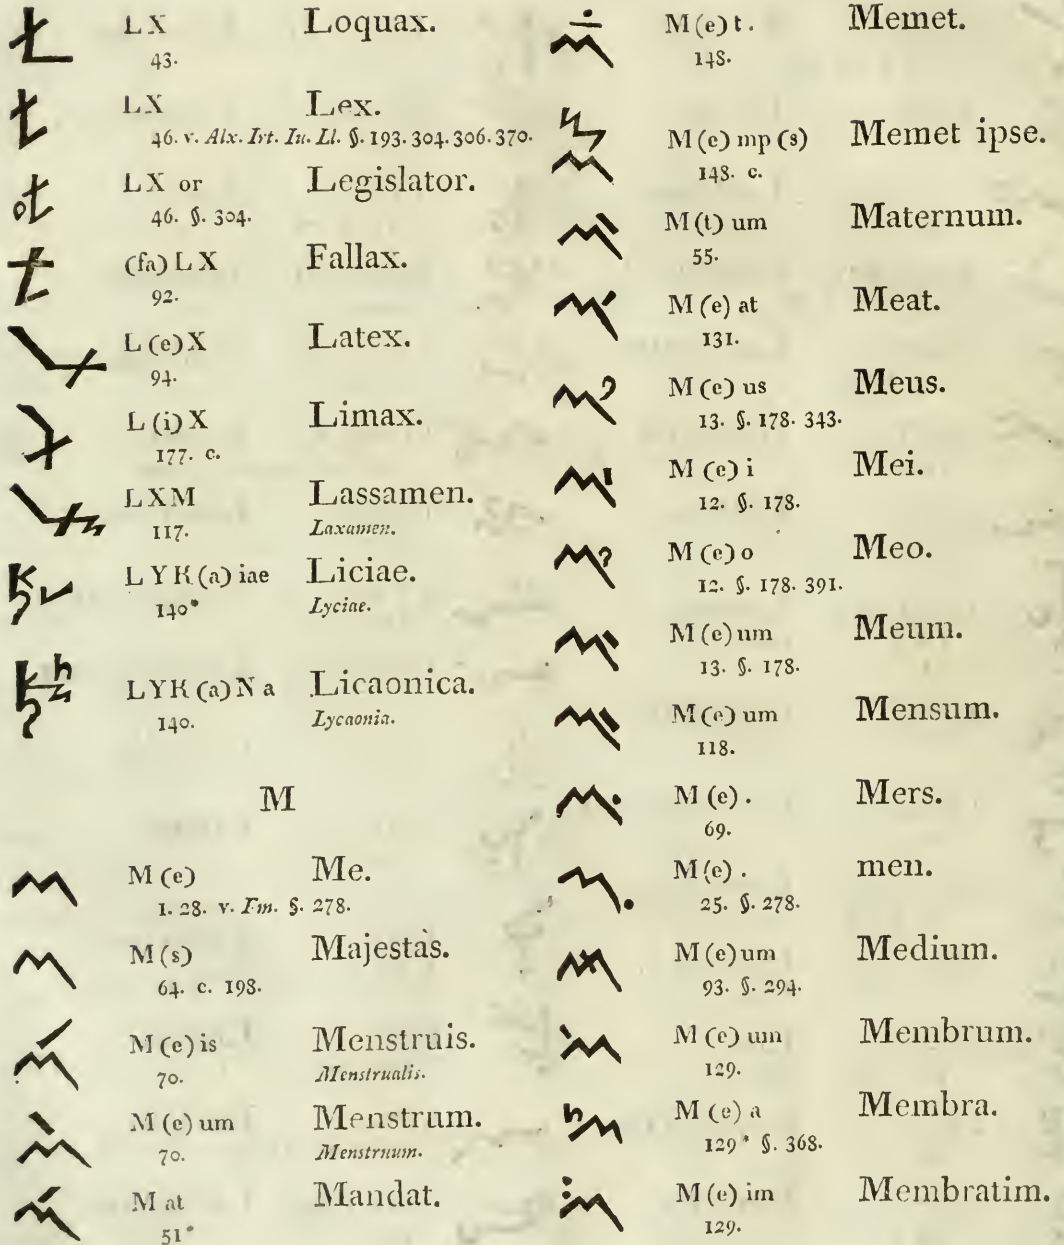 LX Loquax.
43.
LX Lex.
46. v. Alx. Irt. Iu. Ll. §. 193. 304. 306. 370.
LX or Legislator.
46. §. 304.
(fa) LX Fallax.
92.
L (e) X Latex.
94.
L (i) X Limax.
177. c.
LXM Lassamen.
117. Laxamen.
LYK (a) iae Liciae.
140* Lyciae.
LYK (a) N a Licaonica.
140. Lycaonia.
M
M (e) Me.
1. 28. v. Im. §. 278.
M (s) Majestas.
64. c. 198.
M (e) is Menstruis.
70. Menstrualis.
M (e) um Menstrum.
70. Menstruum.
M at Mandat.
51*
M (e) t. Memet.
148.
M (e) mp (s) Memet ipse.
148. c.
M (t) um Maternum.
55.
M (e) at Meat.
131.
M (e) us Meus.
13. §. 178. 343.
M (e) i Mei.
12. §. 178.
M (e) o Meo.
12. §. 178. 391.
M (e) um Meum.
13. §. 178.
M (e) um Mensum.
118.
M (e) . Mers.
69.
M (e) . men.
25. §. 278.
M (e) um Medium.
93. §. 294.
M (e) um Membrum.
129.
M (e) a Membra.
129* §. 368.
M (e) im Membratim.
129.